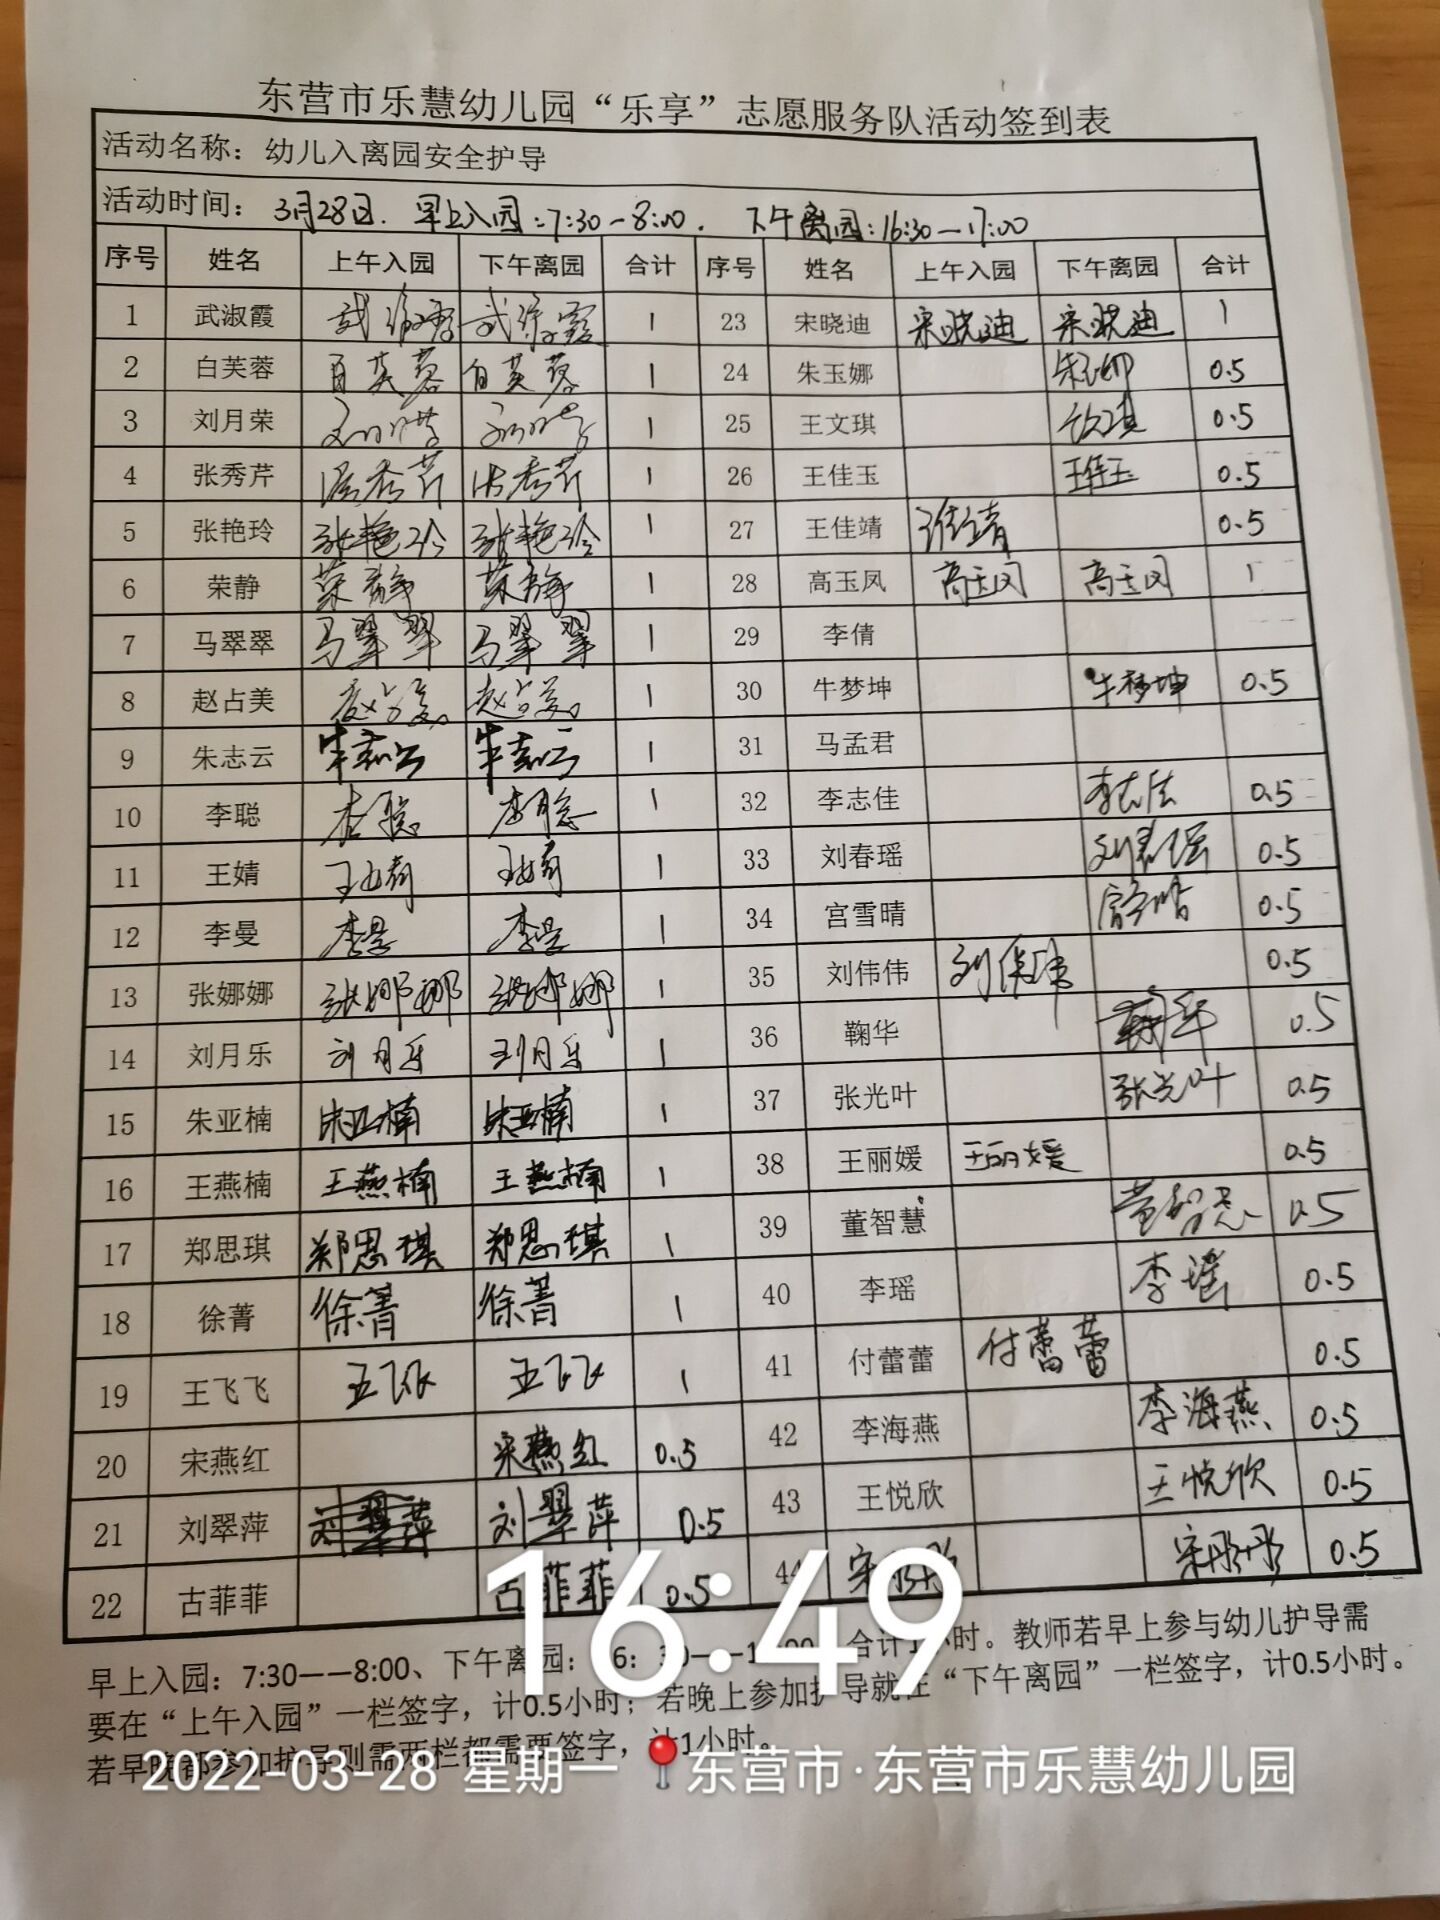 东营市乐慧幼儿园“乐享”志愿服务队活动签到表
活动名称：幼儿入离园安全护导
活动时间：3月28日. 早上入园:7:30—8:00. 下午离园:16:30—17:00
序号 姓名 上午入园 下午离园 合计 序号 姓名 上午入园 下午离园 合计
1 武淑霞 武淑霞 武淑霞 1 23 宋晓迪 宋晓迪 宋晓迪 1
2 白芙蓉 白芙蓉 白芙蓉 1 24 朱玉娜 朱玉娜 0.5
3 刘月荣 1 25 王文琪 0.5
4 张秀芹 张秀芹 张秀芹 1 26 王佳玉 王佳玉 0.5
5 张艳玲 张艳玲 张艳玲 1 27 王佳靖 王佳靖 0.5
6 荣静 荣静 荣静 1 28 高玉凤 高玉凤 高玉凤 1
7 马翠翠 马翠翠 马翠翠 1 29 李倩
8 赵占美 赵占美 赵占美 1 30 牛梦坤 牛梦坤 0.5
9 朱志云 朱志云 朱志云 1 31 马孟君
10 李聪 李聪 李聪 1 32 李志佳 李志佳 0.5
11 王婧 王婧 王婧 1 33 刘春瑶 刘春瑶 0.5
12 李曼 李曼 李曼 1 34 宫雪晴 0.5
13 张娜娜 张娜娜 张娜娜 1 35 刘伟伟 刘伟伟 0.5
14 刘月乐 刘月乐 刘月乐 1 36 鞠华 鞠华 0.5
15 朱亚楠 朱亚楠 朱亚楠 1 37 张光叶 张光叶 0.5
16 王燕楠 王燕楠 王燕楠 1 38 王丽媛 王丽媛 0.5
17 郑思琪 郑思琪 郑思琪 1 39 董智慧 董智慧 0.5
18 徐菁 徐菁 徐菁 1 40 李瑶 李瑶 0.5
19 王飞飞 王飞飞 王飞飞 1 41 付蕾蕾 付蕾蕾 0.5
20 宋燕红 宋燕红 0.5 42 李海燕 李海燕 0.5
21 刘翠萍 刘翠萍 刘翠萍 0.5 43 王悦欣 王悦欣 0.5
22 古菲菲 古菲菲 0.5 44 宋彤彤 宋彤彤 0.5
16:49
早上入园：7:30——8:00、下午离园： 6：30—— 合计1小时。教师若早上参与幼儿护导需
要在“上午入园”一栏签字，计0.5小时；若晚上参加护导就在“下午离园”一栏签字，计0.5小时。
若早晚都参加护导则需两栏都需要签字，计1小时。
2022-03-28 星期一 东营市·东营市乐慧幼儿园